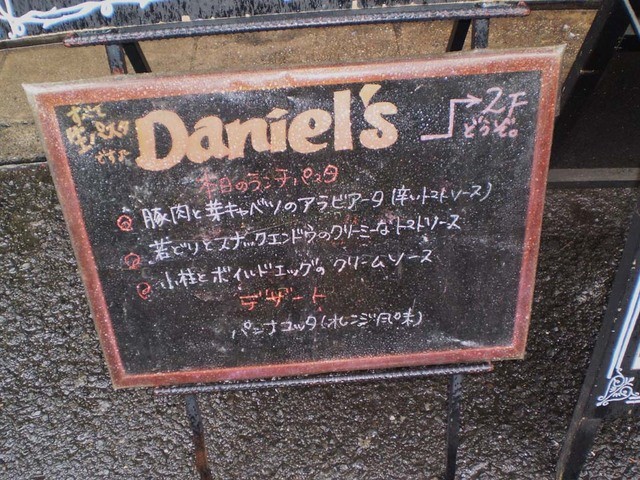 すべて
生パスタ
です
Daniel's
→2F
どうぞ。
本日のランチパスタ
豚肉と芽キャベツのアラビアータ(辛いトマトソース)
若どりとスナックエンドウのクリーミーなトマトソース
小柱とボイルドエッグのクリームソース
デザート
パンナコッタ(オレンジ風味)